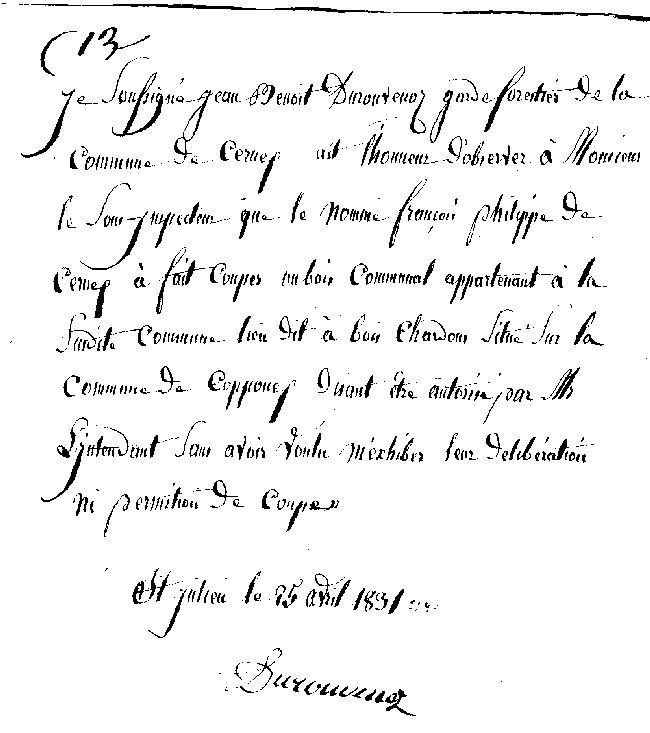 13
Je Soussigné jean Benoit Durouvenoz garde forestier de la
Commune de Cernep ait l'honneur d'observer à Monsieur
le Sous-jnspecteur que le nommé françois philippe de
Cernep à fait Couper un bois Communal appartenant à la
Susdite Commune lieu dit à bois Chardon Situé Sur la
Commune de Copponep disant être autorisé par Mr
L'jntendant Sans avoir voulu m'exhiber leur deliberation
ni permition de Couper
St julien le 25 avril 1831
Durouvenoz